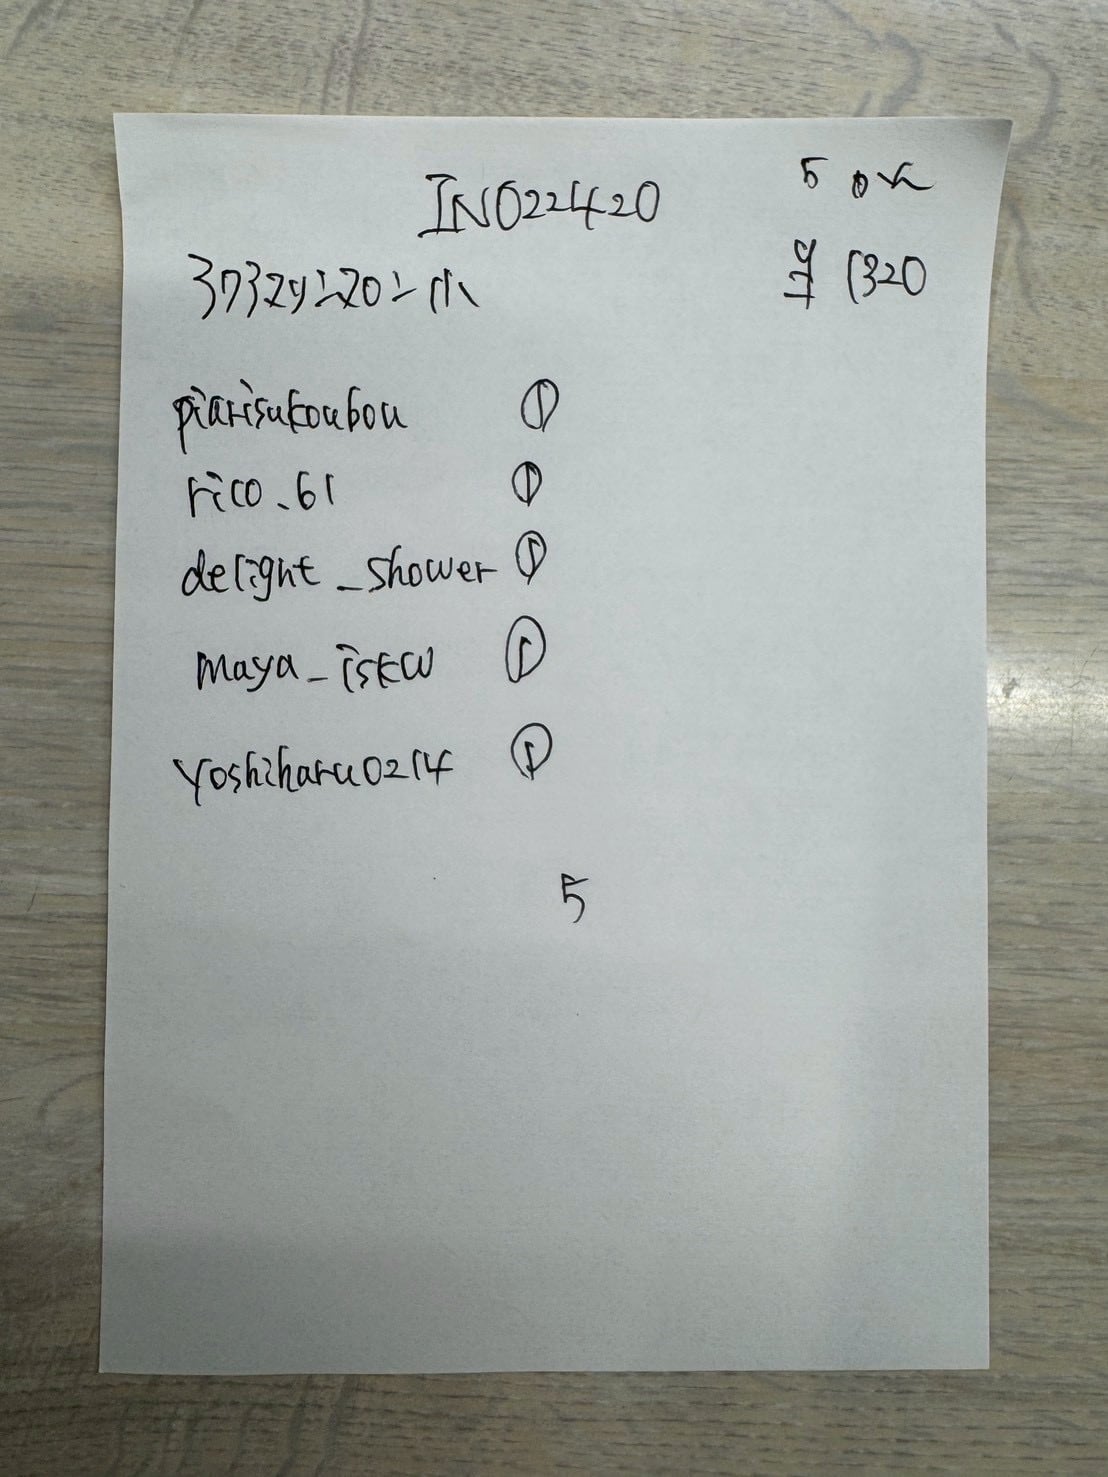 IN022420
5 ロス
ヨコ 1320
piarisukoubou ①
rico_61 ①
delight_shower ①
maya_iskw ①
yoshiharu0214 ①
5